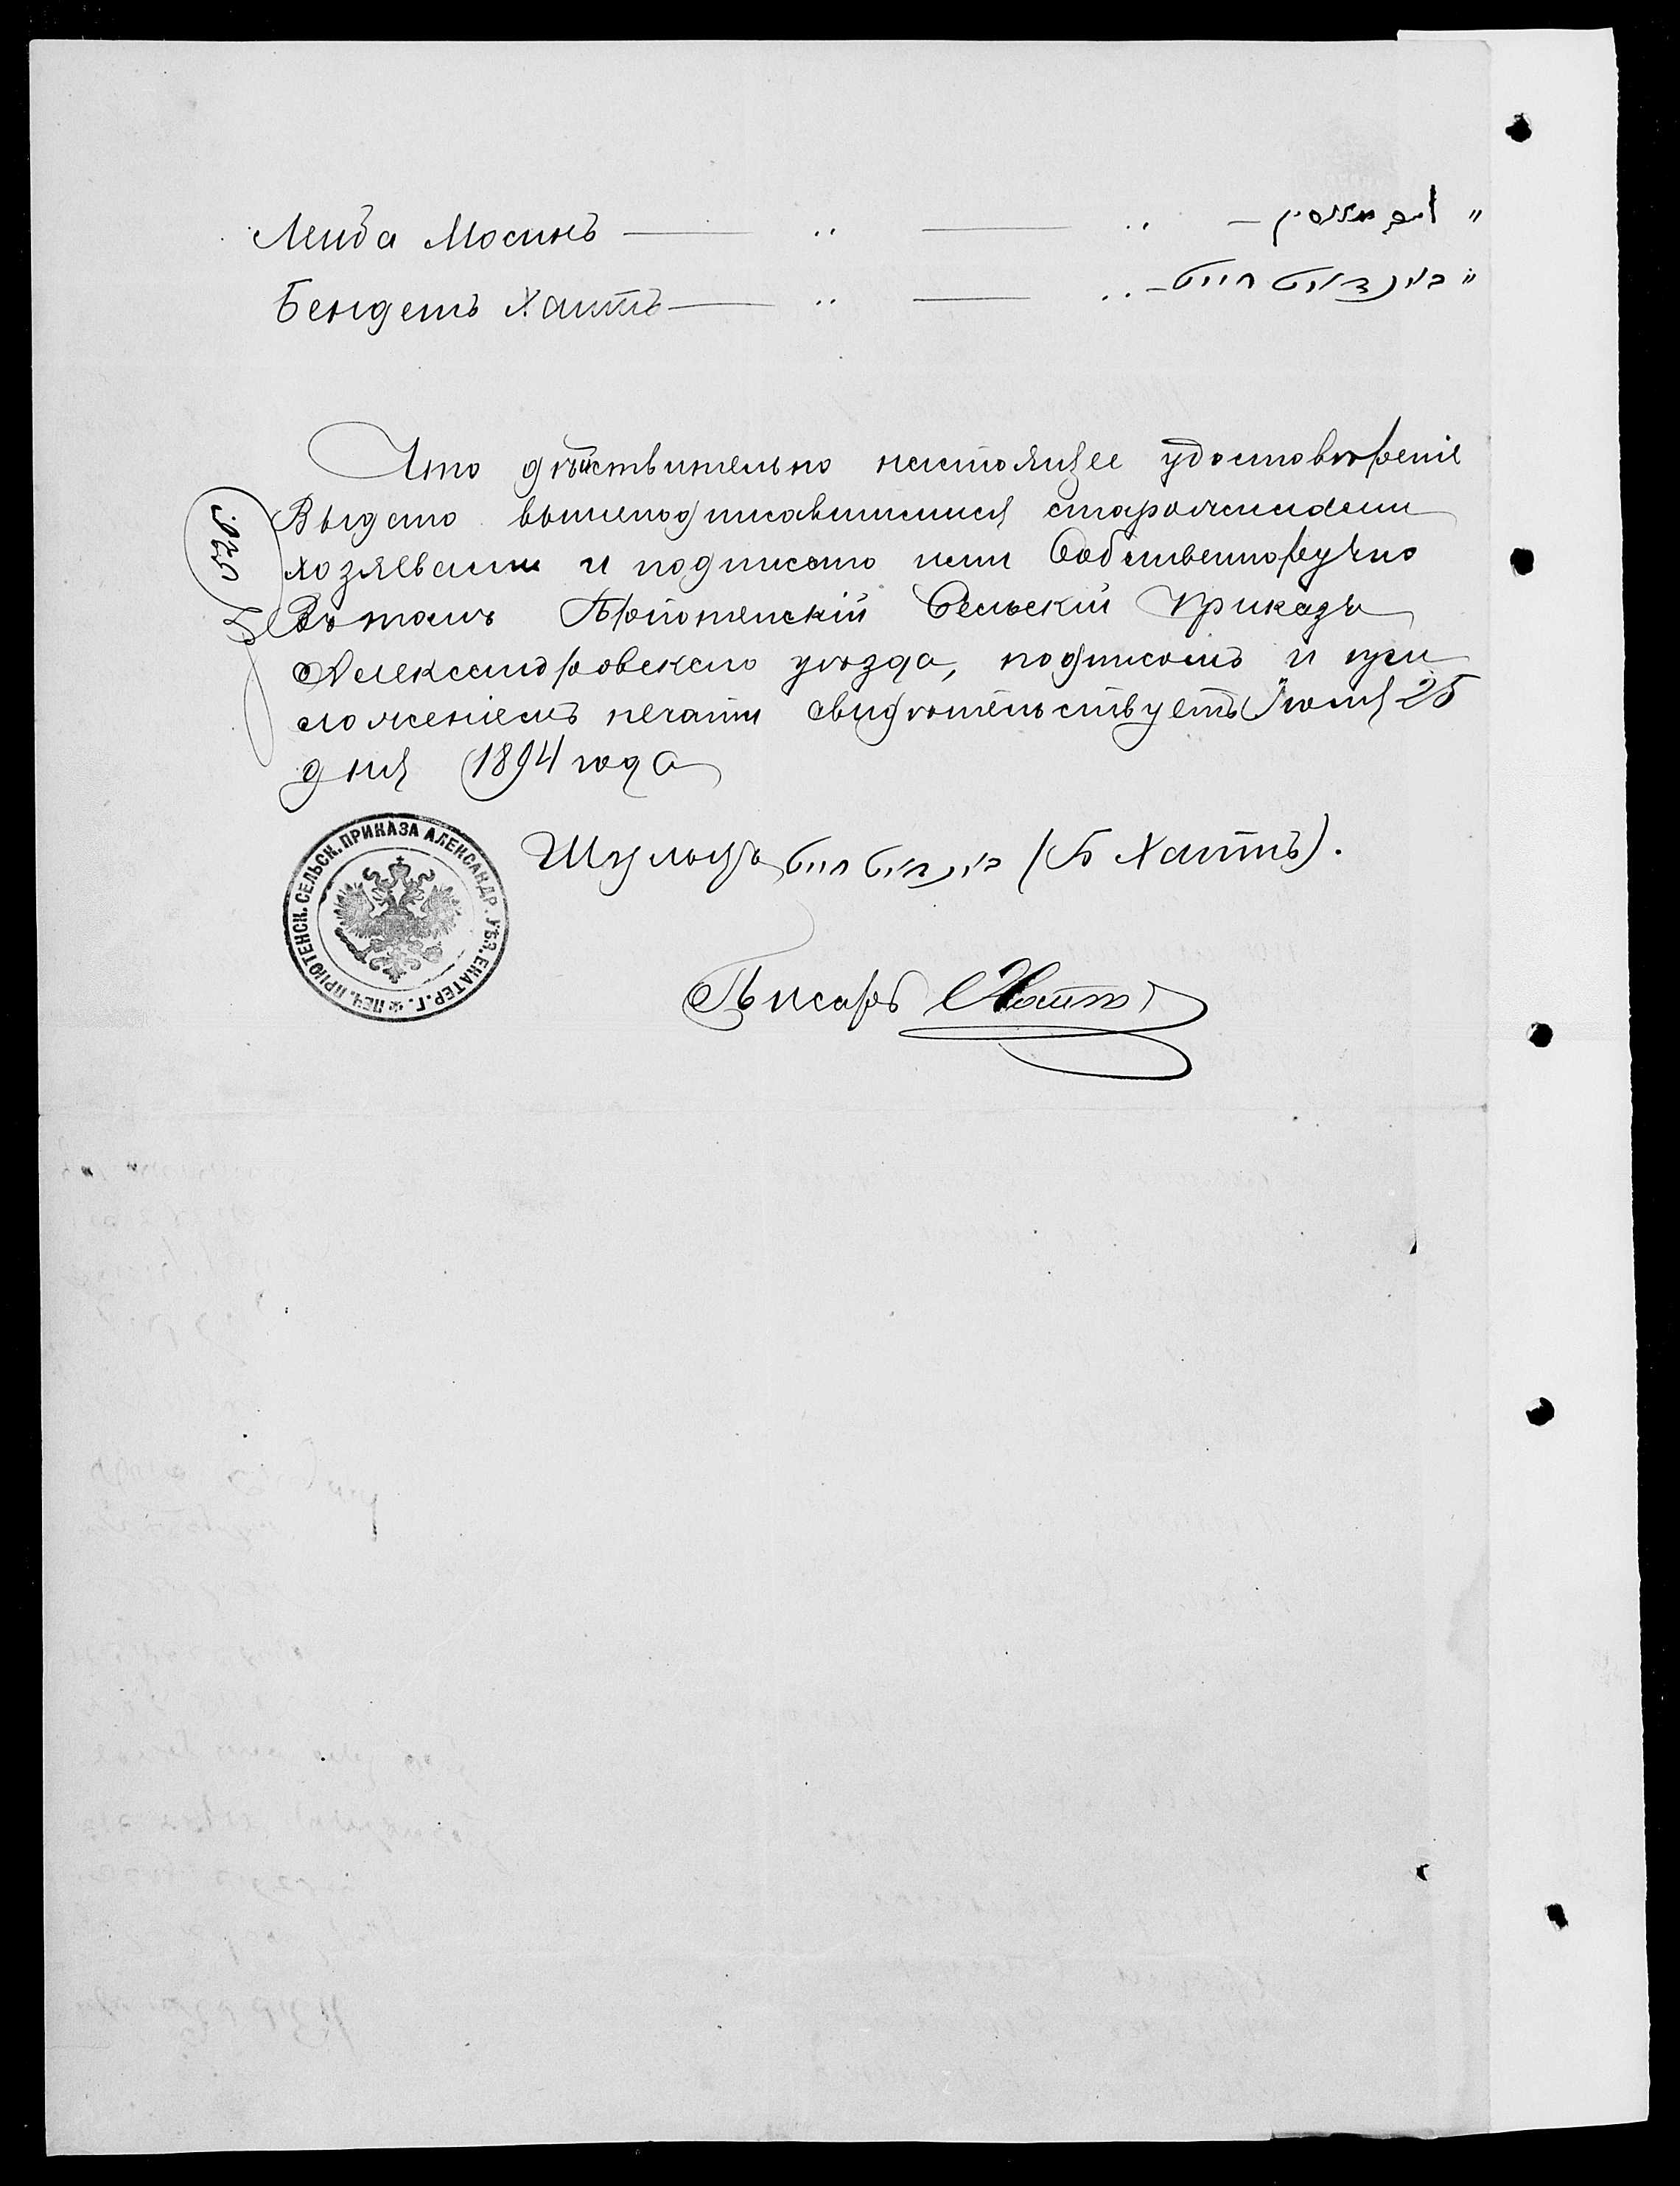 Лейба Мосинъ — " — " — לייב מאסין "
Бендетъ Хаитъ — " — " — בענדיט חייט "
Что дѣйствительно настоящее удостовѣреніе
Выдано вышеподписавшимися старожилами
хозяевами и подписано ими Собственноручно
Въ томъ Пріютенскій Сельскій Приказъ
Александровскаго уѣзда, подписомъ и при
ложеніемъ печати свидѣтельствуетъ Іюля 25
дня 1894 года
№
Шульцъ בענדיט חייט (Б Хаитъ).
Писарь
ПЕЧ. ПРІЮТЕНСК. СЕЛЬСК. ПРИКАЗА АЛЕКСАНДР. УѢЗ. ЕКАТЕР. Г.